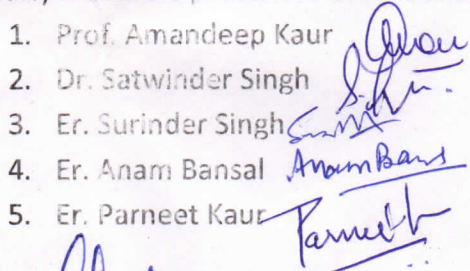 1. Prof. Amandeep Kaur
2. Dr. Satwinder Singh
3. Er. Surinder Singh
4. Er. Anam Bansal Anam Bans
5. Er. Parneet Kaur Parneet